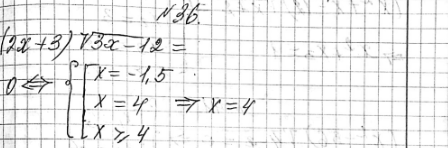 №36.
(2x+3)√3x-12 =
0 ⇔ { [ x = -1,5
x = 4 ⇒ x = 4
x ⩾ 4